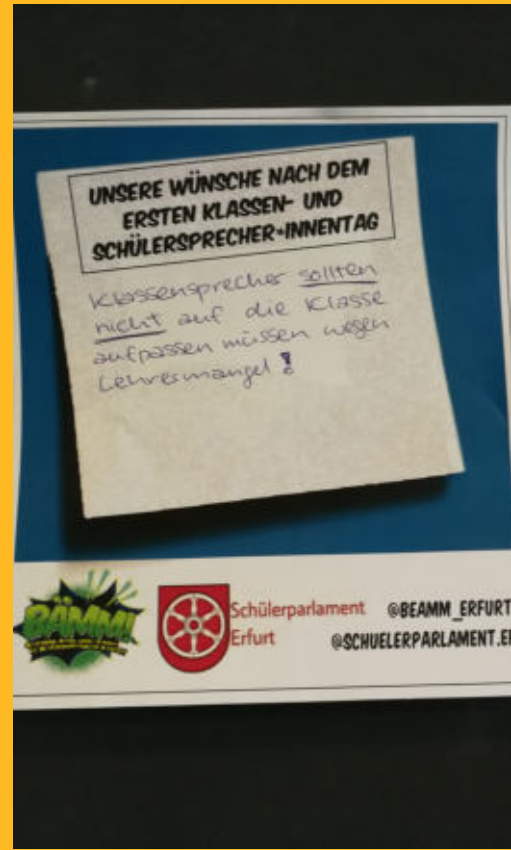 UNSERE WÜNSCHE NACH DEM
ERSTEN KLASSEN- UND
SCHÜLERSPRECHER*INNENTAG
Klassensprecher sollten
nicht auf die Klasse
aufpassen müssen wegen
Lehresmangel!
BÄMM!
Schülerparlament
Erfurt
@BEAMM_ERFURT
@SCHUELERPARLAMENT.E